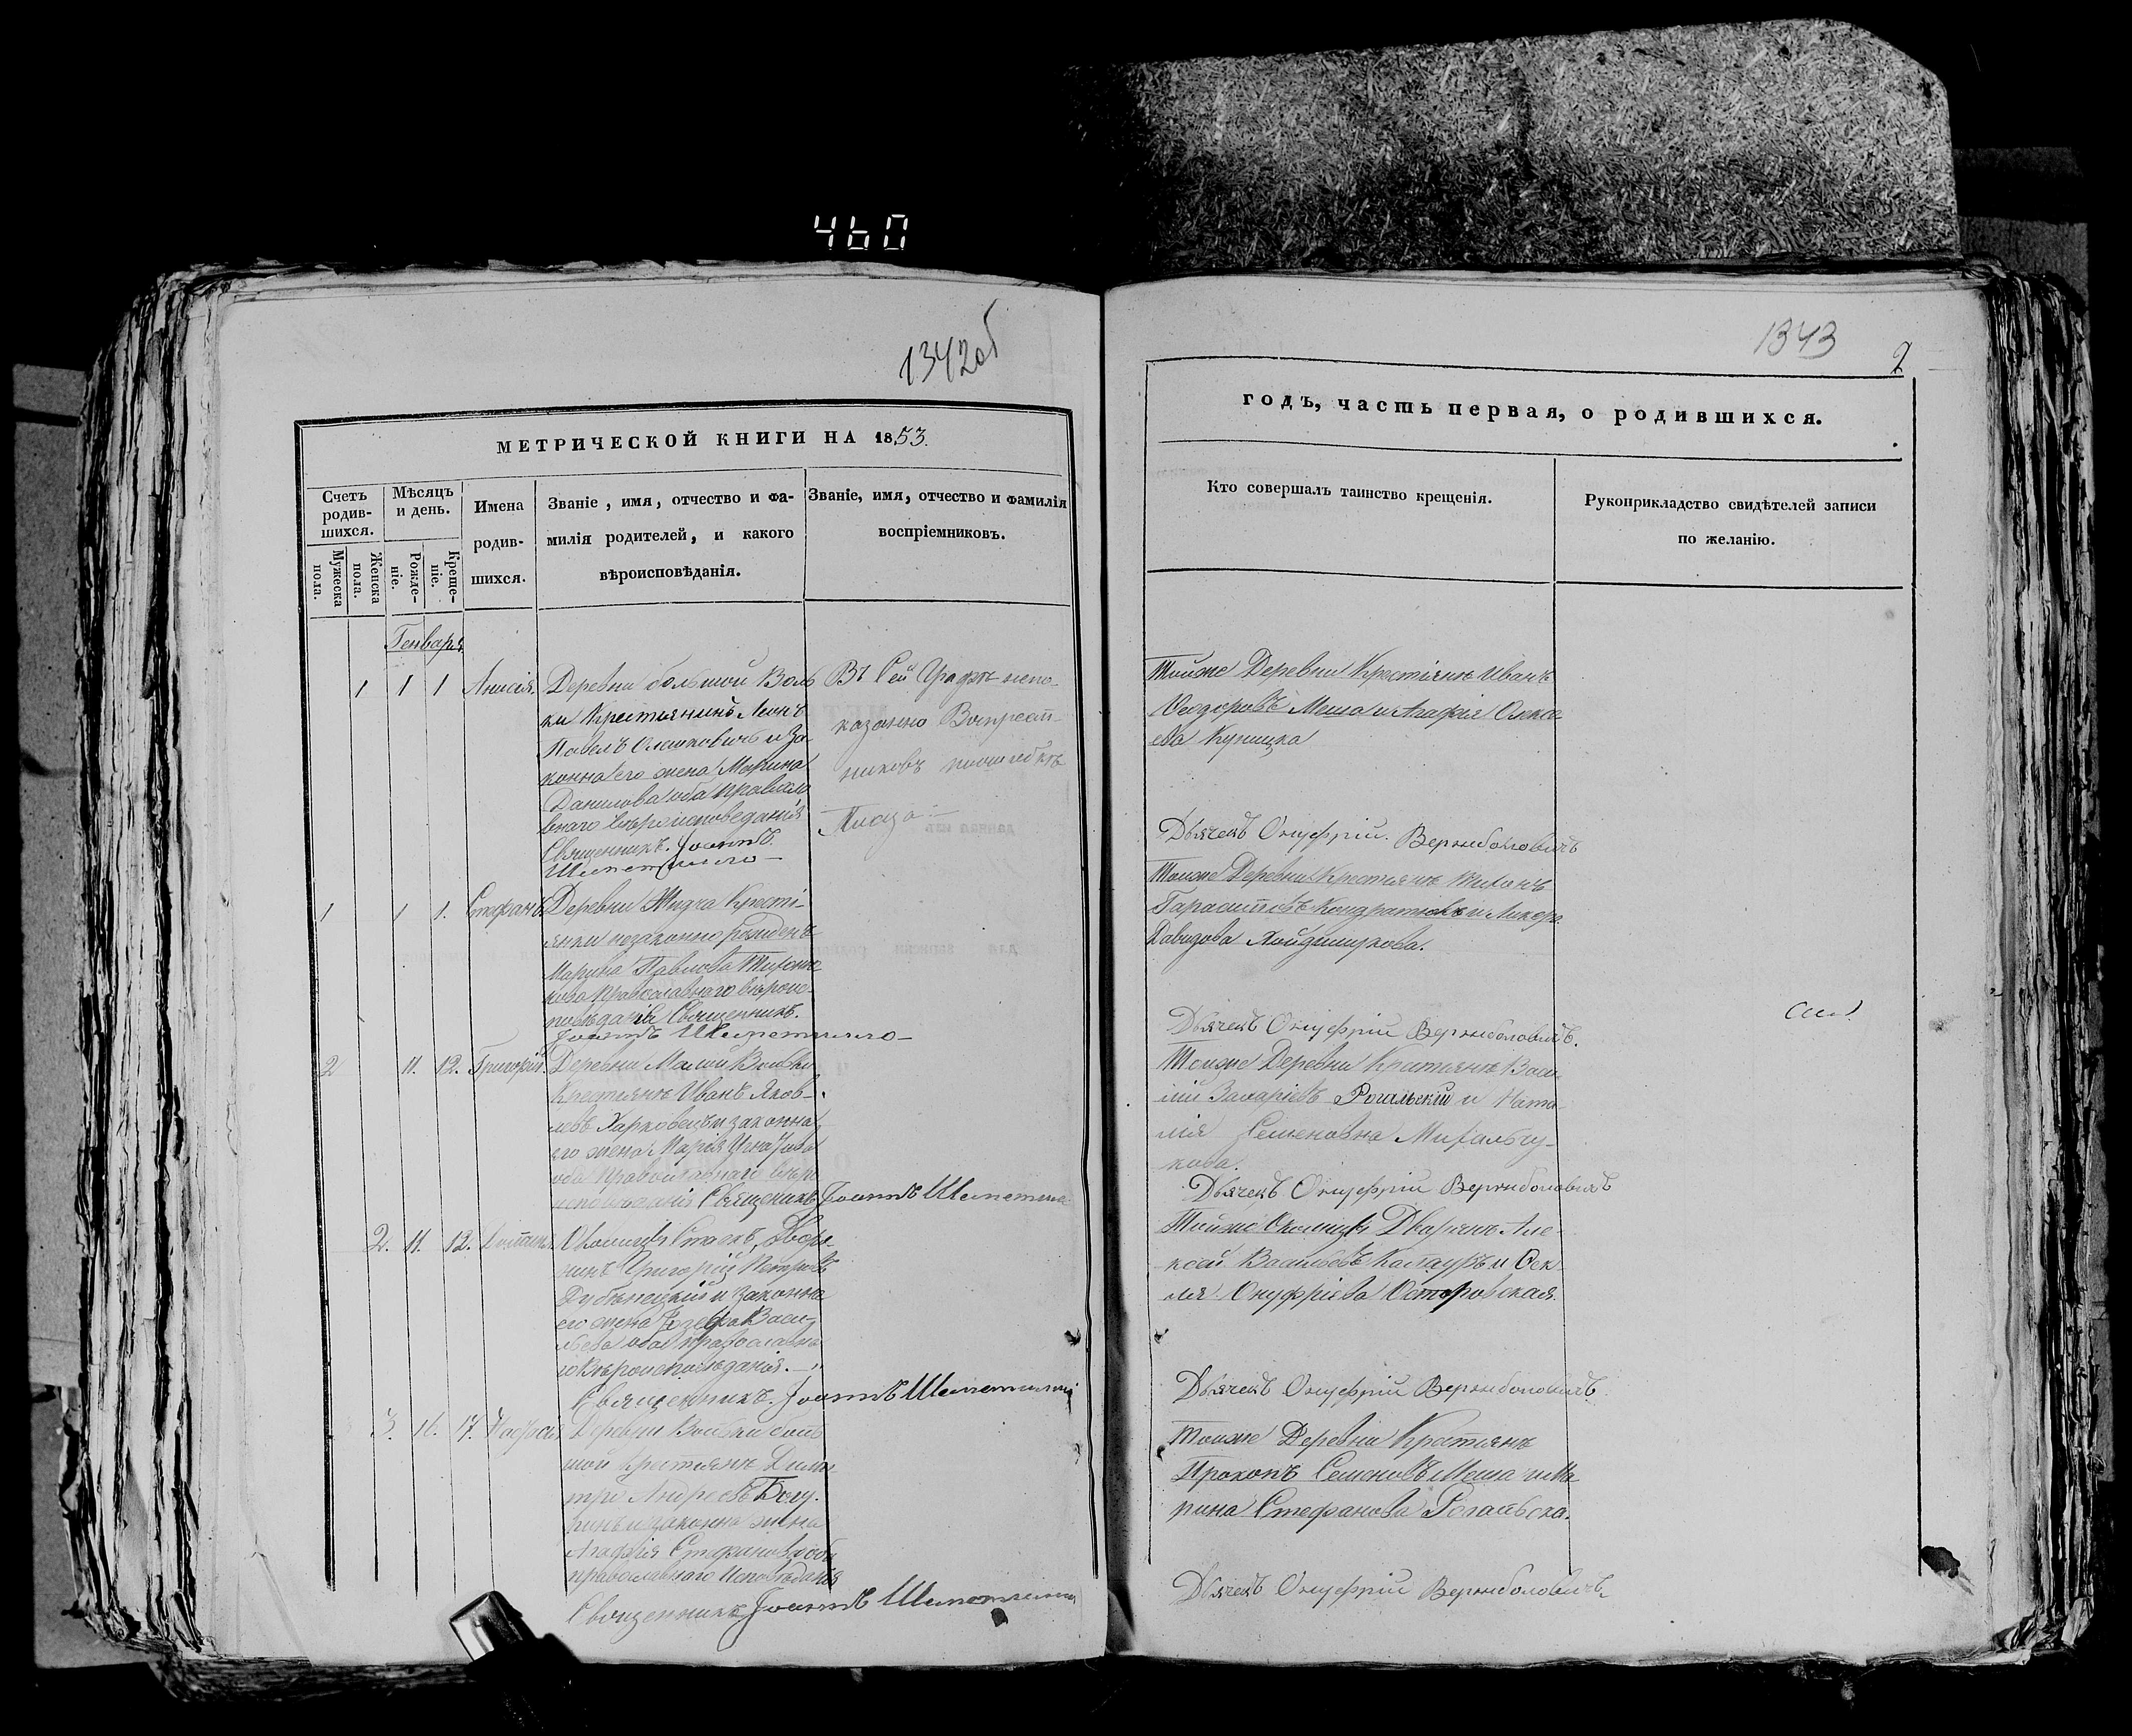 460
1342об
МЕТРИЧЕСКОЙ КНИГИ НА 1853.
Счетъ родив-шихся.
Мужеска пола.
Женска пола.
Мѣсяцъ и день.
Рожде-ніе.
Креще-ніе.
Имена родив-шихся.
Званіе, имя, отчество и фа-
милія родителей, и какого
вѣроисповѣданія.
Званіе, имя, отчество и фамилія
воспріемниковъ.
Генваря
1 1 1 Анисія.
Деревни большой Воль
ки Крестьянинъ Леонъ
Павелъ Олешковичъ и за
конна его жена Марина
Данилова оба православ
внаго вѣроисповеданія
Священникъ Іоаннъ
Въ Сей Графѣ непо-
казанно Воспреем-
никовъ
1 1 1. Стефанъ
Деревни Жидча Кресті-
янки незаконно рожденъ
Марина Павлова
Православнаго вѣроис-
повѣданія Священникъ
Іоаннъ
2 11. 12. Григорій.
Деревни Малой Вольки
Крестьянъ Иванъ Яков-
левъ Харковецъ и законна
его жена Марія Игнатова
оба Православнаго вѣро
исповѣданія Священникъ Іоаннъ
2. 11. 12.
Околицы Дворя-
нинъ Григорій Петровъ
Дубѣнецкій и законна
его жена Іозефа Васи-
льева оба православна
го Вѣроисповѣданія.
Священникъ Іоаннъ
3. 16. 17.
Деревни Вольки боль
шой Крестьянъ Дими
трі Андреевъ
и законна жена
Агафія Стефанова оба
православнаго Исповѣданія
Священникъ Іоаннъ
1343
2
годъ, часть первая, о родившихся.
Кто совершалъ таинство крещенія.
Рукоприкладство свидѣтелей записи
по желанію.
Тойже Деревни Крестіянъ Иванъ
Феодоровъ Меша и Агафія Алексе
ева Куницка
Дьячекъ Онуфрій Вержболовичъ
Тойже Деревни Крестьянъ
Давидова
Дьячекъ Онуфрій Вержболовичъ.
Тойже Деревни Крестьянъ Васи
лій Захаріевъ Рогальскій и Ната
лія Семеновна Михальчу-
кова.
Дьячекъ Онуфрій Вержболовичъ
Тойже Околицы Дворянъ Але
ксѣй Васильевъ и Фек
ла Онуфріева Островская.
Дьячекъ Онуфрій Вержболовичъ
Тойже Деревни Крестьянъ
Прокопъ Семеновъ Меша и Ма
рина Стефанова Рогальска.
Дьячекъ Онуфрій Вержболовичъ